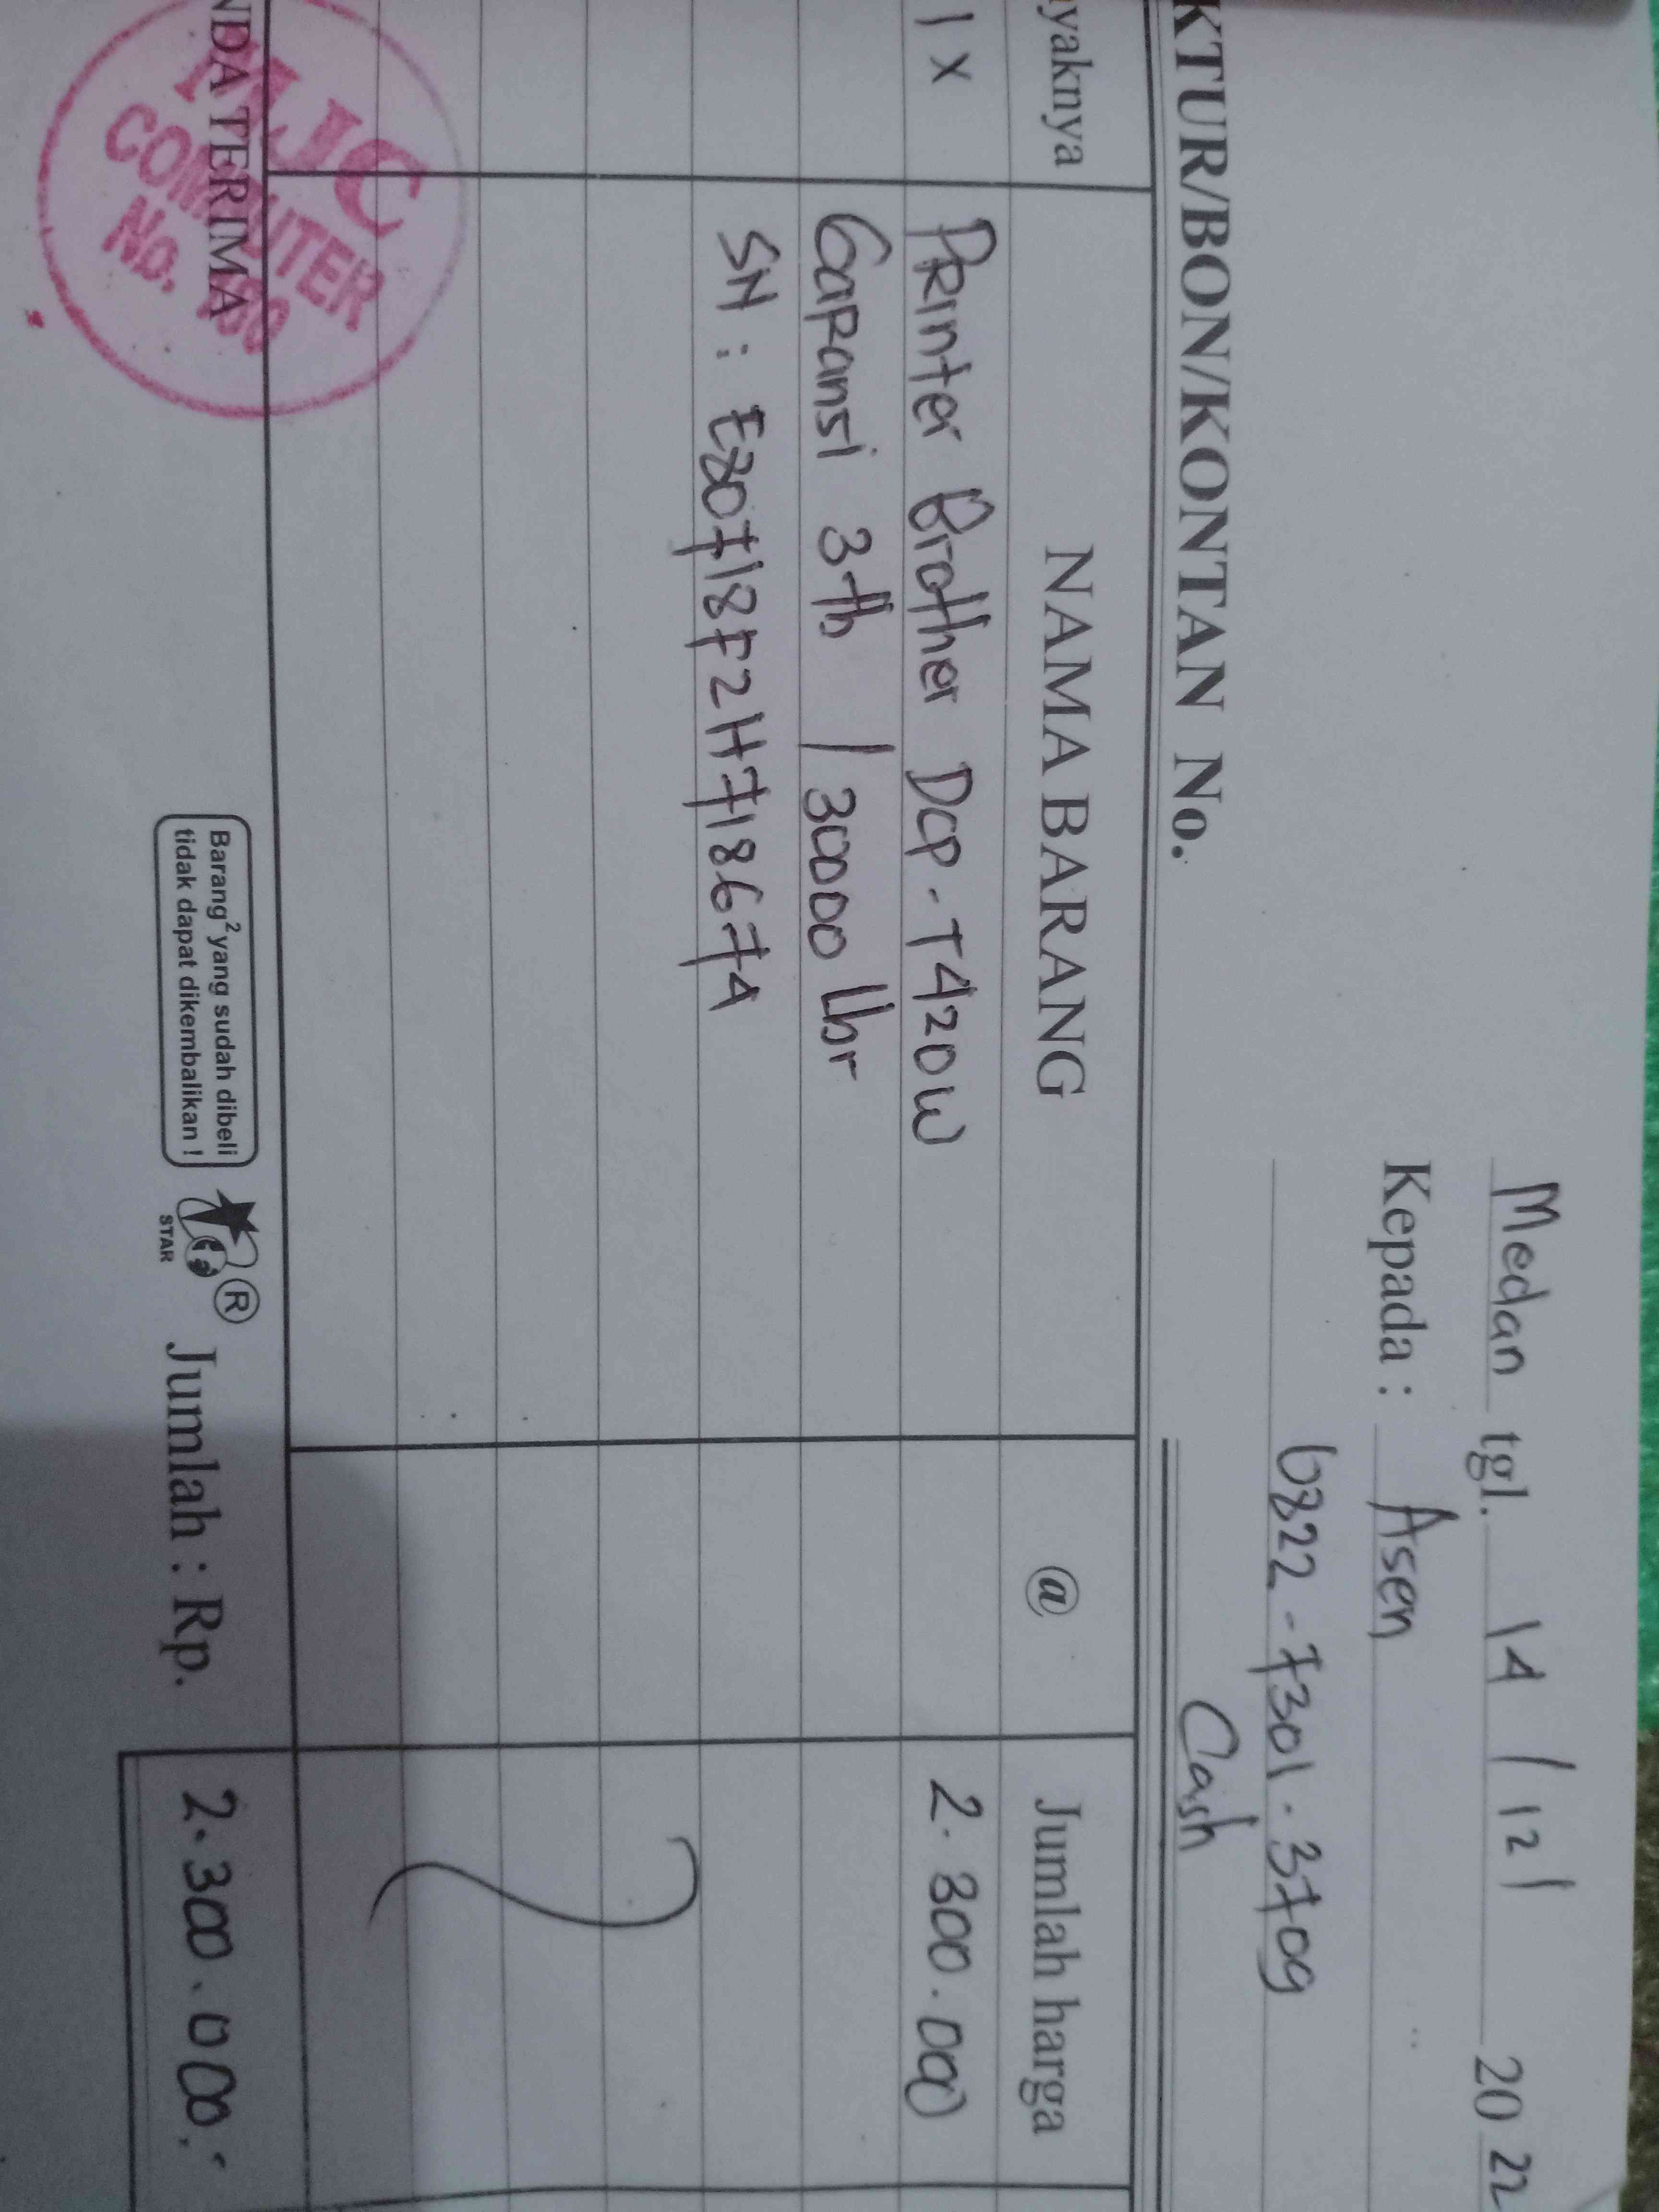 Medan tgl. 14 / 12 / 20 22
Kepada : Asen
0822 - 7301 . 3709
KTUR/BON/KONTAN No.
Cash
yaknya NAMA BARANG @ Jumlah harga
1 x Printer Brother DCP - T420W 2.300.000
Garansi 3 th / 30000 lbr
SN : E80718F2H718674
NDA TERIMA
COMPUTER
No.
Barang² yang sudah dibeli
tidak dapat dikembalikan !
STAR
®
Jumlah : Rp. 2.300.000,-